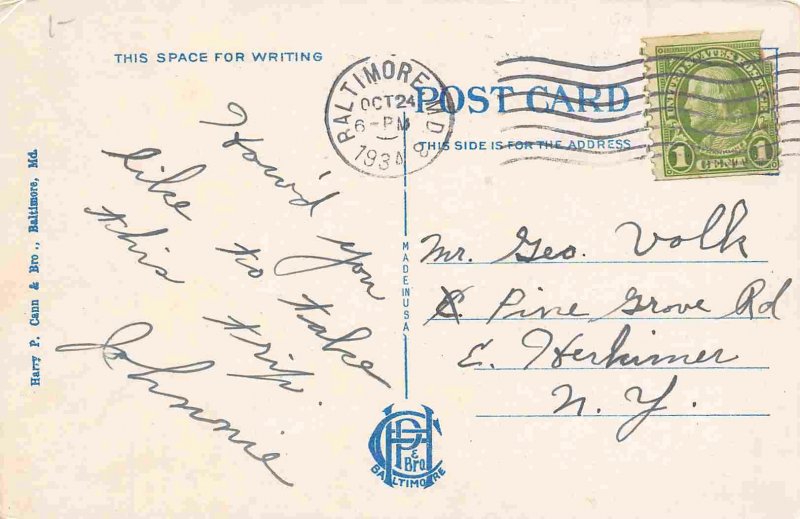 1-
THIS SPACE FOR WRITING
How'd you
like to take
this trip.
Johnnie
Harry P. Cann & Bro., Baltimore, Md.
BALTIMORE, MD.
OCT 24
6-PM
193
POST CARD
THIS SIDE IS FOR THE ADDRESS
UNITED STATES POSTAGE
1 CENT 1
MADE IN USA
Mr. Geo. Volk
Pine Grove Rd
E. Herkimer
N. Y.
HPC
& Bro
BALTIMORE